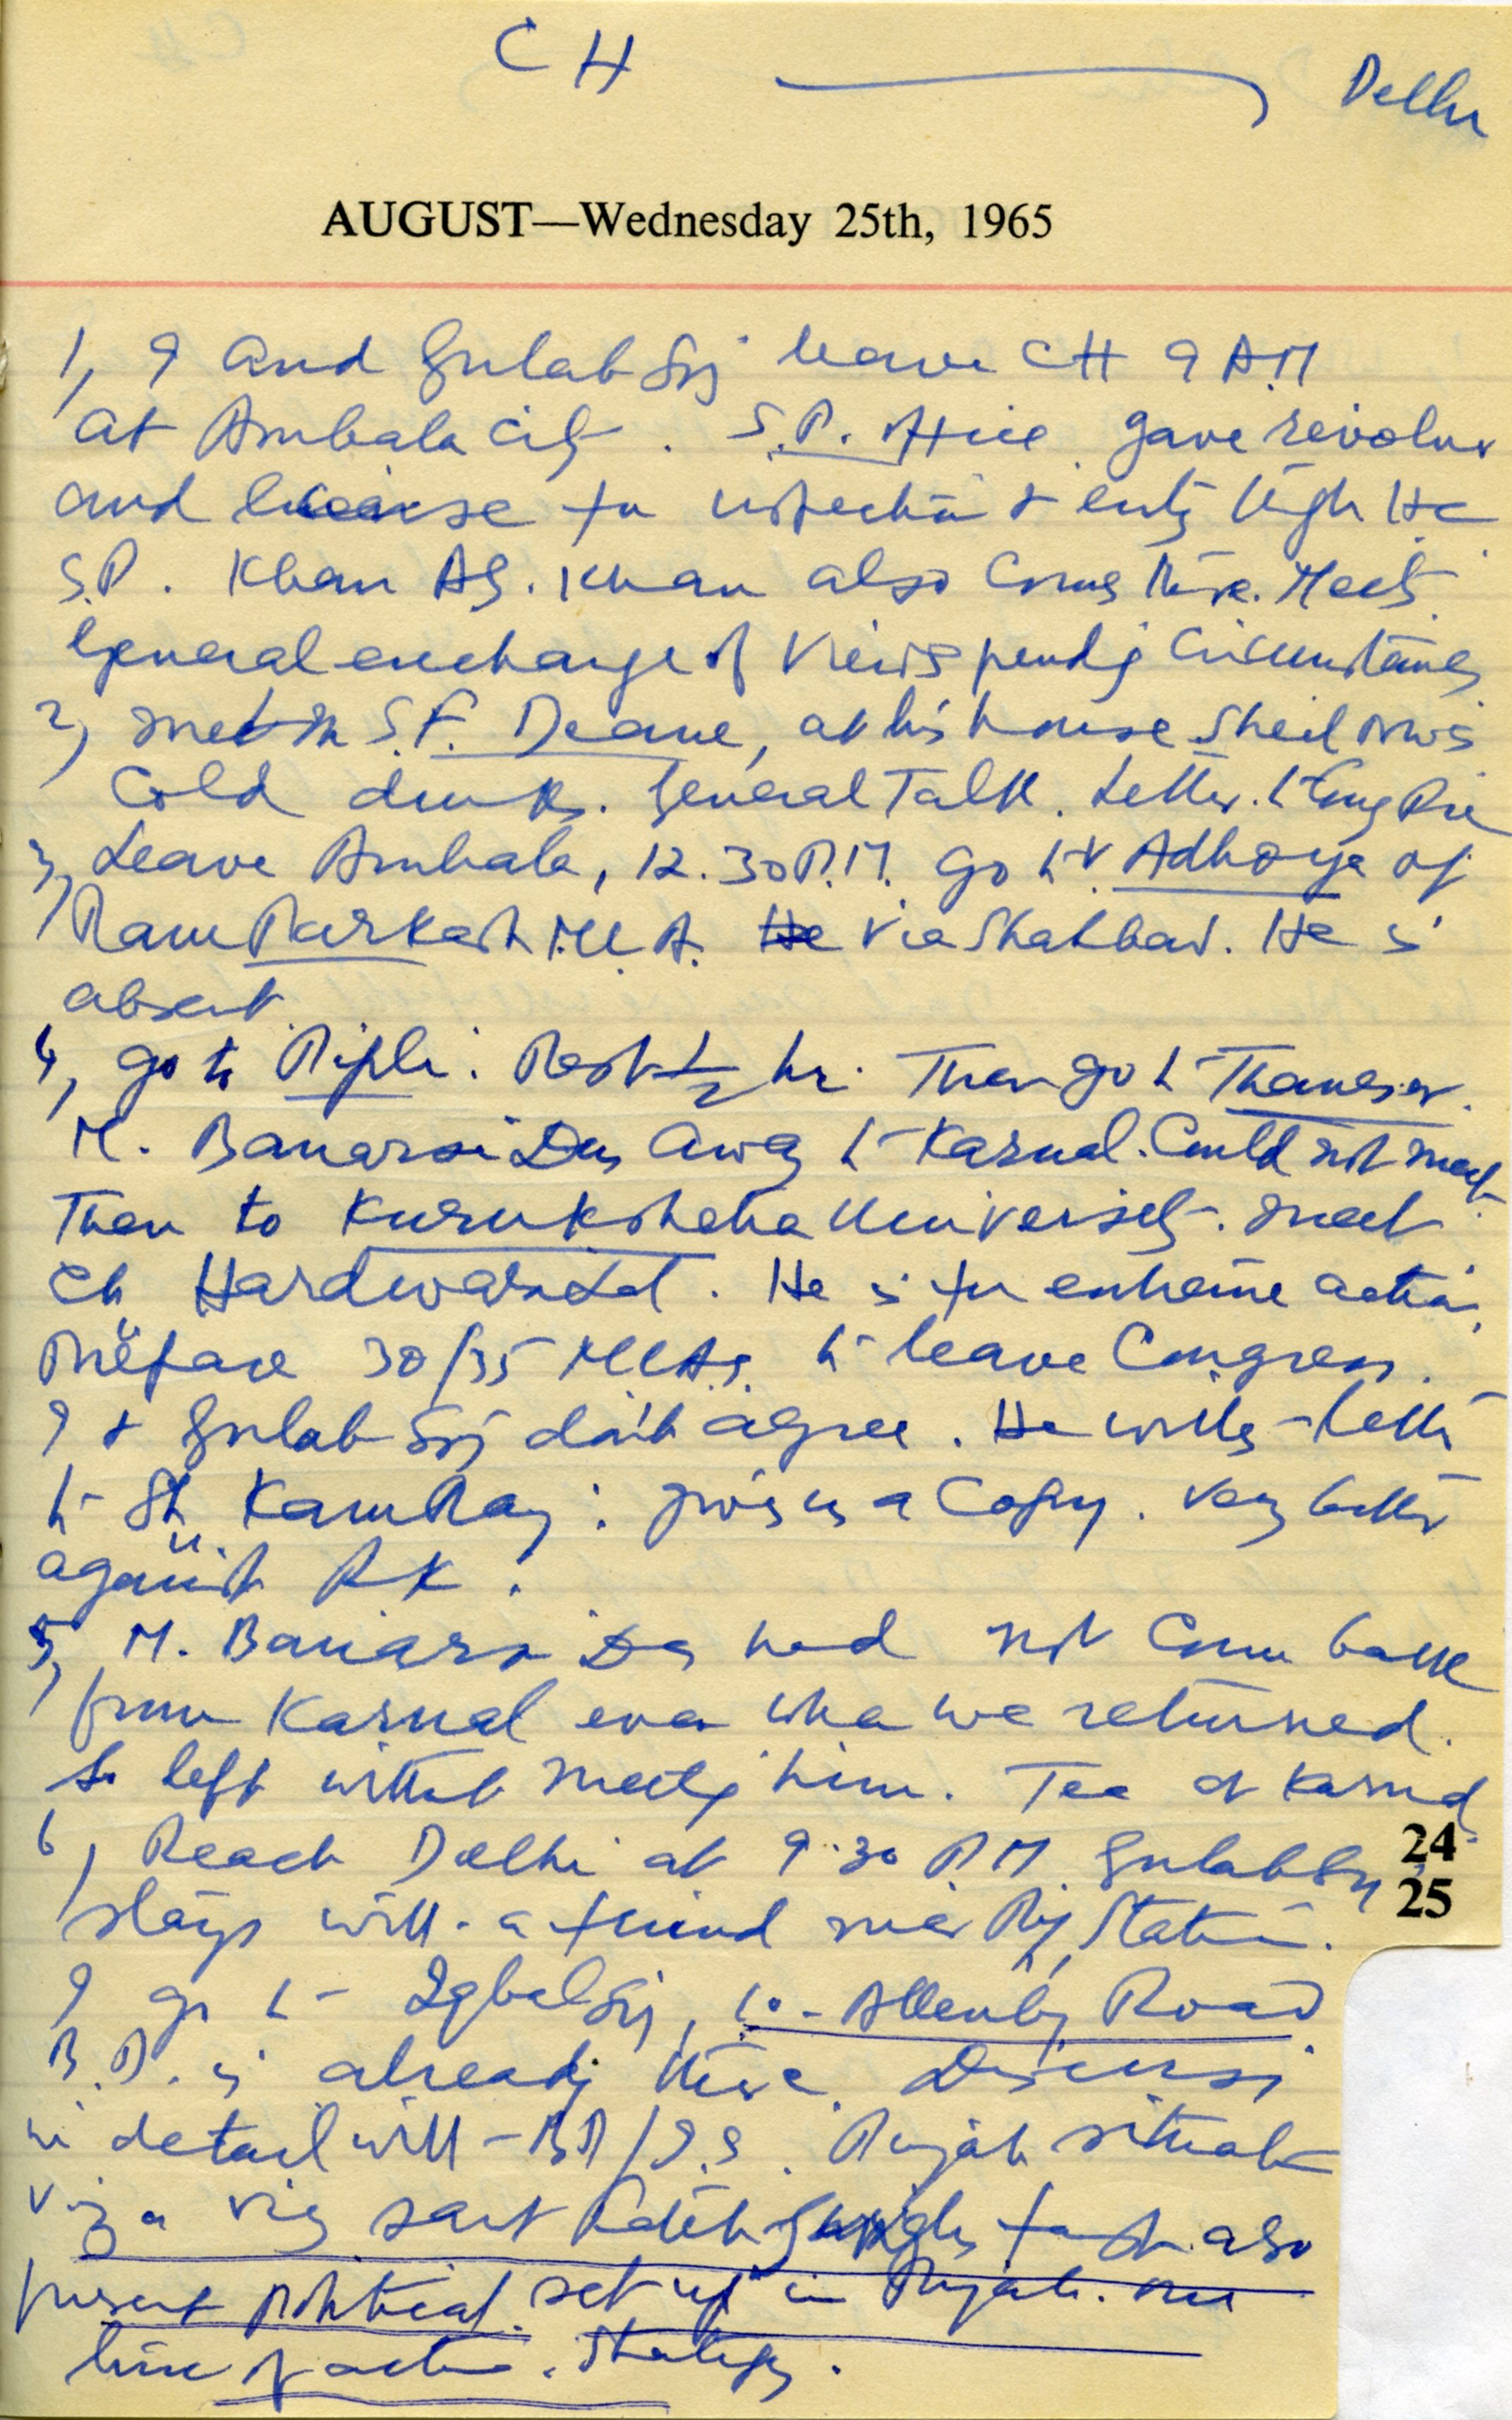 CH — Delhi
AUGUST—Wednesday 25th, 1965
1, I and Gulab Sing leave CH 9 A.M
at Ambala City. S.P. Office gave revolver
and license for inspection & entry High He
S.P. Khan AG. Khan also comes there. Meets
General exchange of views pending circumstances
2, meet Sh S.F. Deane, at his house Sheel drinks
Cold drinks. General Talk. Letter to Cong Pre
3, Leave Ambala, 12.30 P.M. go to V. Adhoya of
Ram Parkash M.L.A. He via Shahbad. He is
absent
4, go to Pipli. Rest ½ hr. Then go to Thanesar.
M. Banarsi Das away to Karnal. Could not meet
Then to Kurukshetra University. meet
Ch Hardwari Lal. He is for extreme action,
Prepare 30/35 MLAs. to leave Congress.
I & Gulab Sing don't agree. He writes letter
to Sh KamRaj: gives us a Copy. Very bitter
against RK.
5, M. Banarsi Das had not come back
from Karnal even when we returned.
So left without meeting him. Tea at Karnal
6, Reach Delhi at 9.30 P.M. Gulab Sing
stays with a friend near Rly Station.
24
25
I go to Iqbal Sing, 10 - Allenby Road
B.D. is already there. Discuss
in detail with BD/I.S. Punjab situation
viz a viz Sant Fateh Singh's fast also
present political set up in Punjab. our
line of action. Strategy.